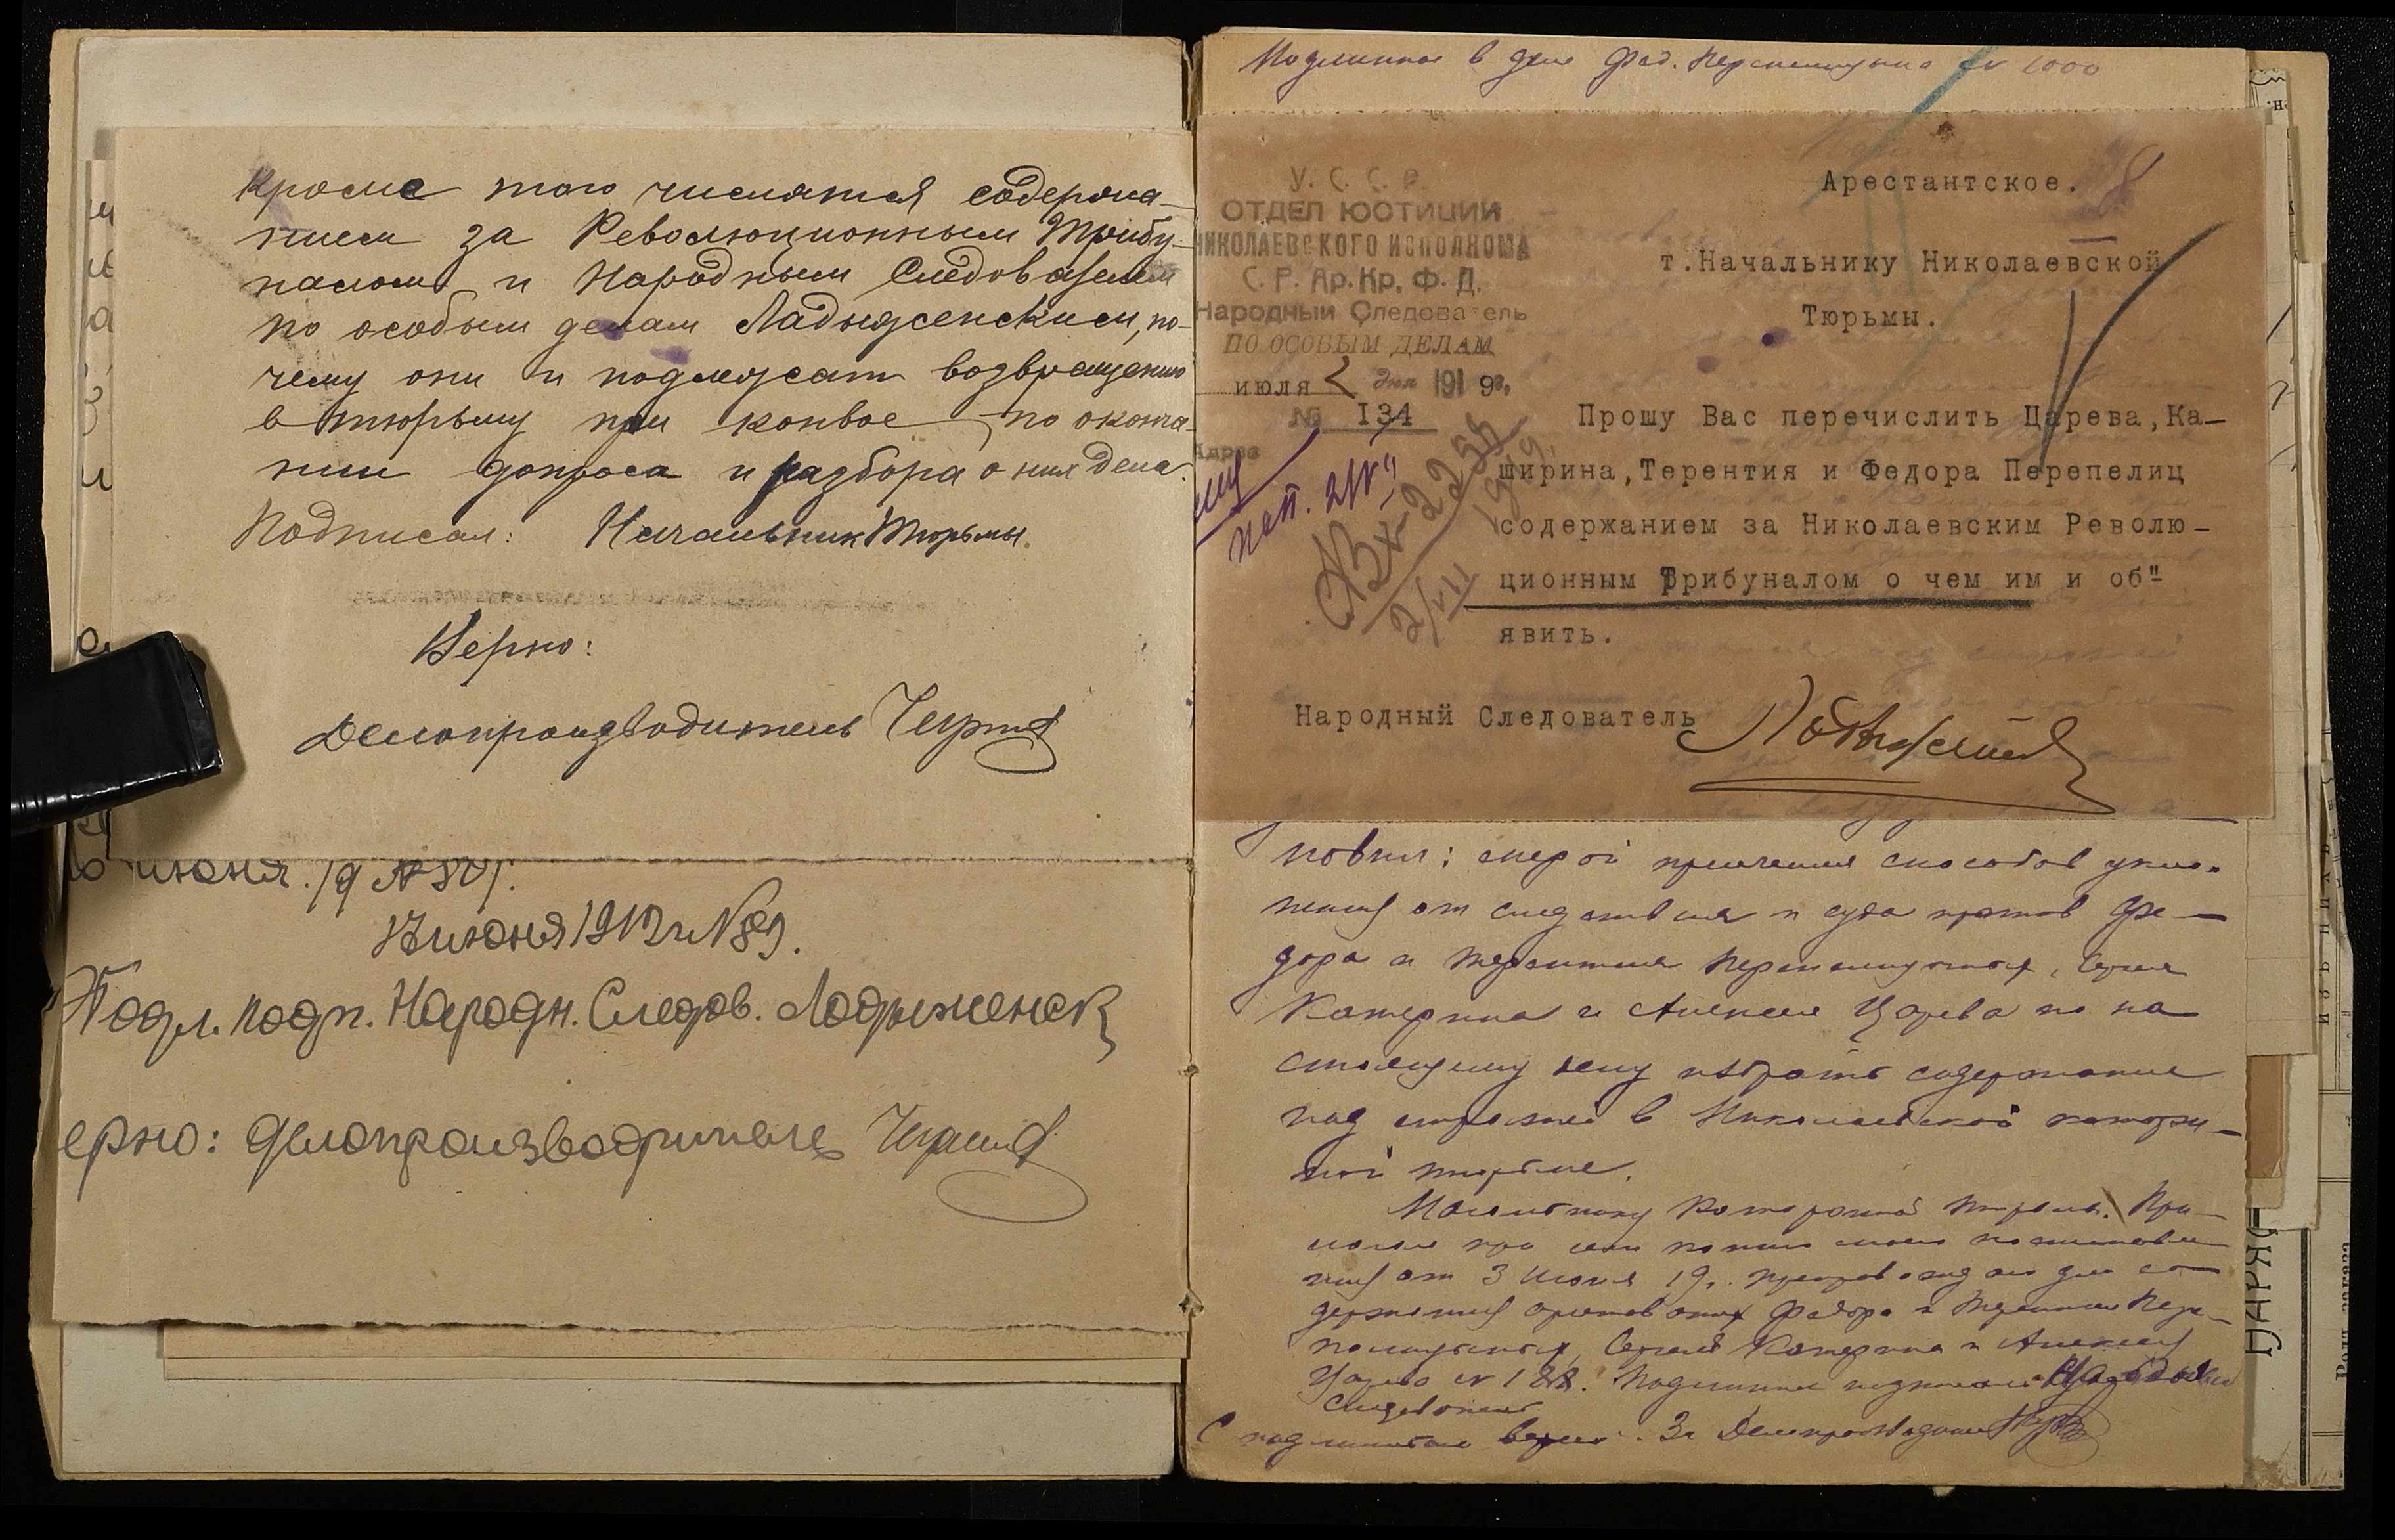 Кроме того числятся содержа-
нием за Революционным Трибу-
налом и Народным Следователем
по особым делам Ладыженским, по-
чему они и подлежат возвращению
в тюрьму при конвое по оконча-
нии допроса и разбора о них дела.
Подписал: Начальник Тюрьмы.
Верно:
Делопроизводитель
июня 19
июня 1919 г. №
Подл. подп. Народн. Следов. Ладыженск
ерно: делопроизводитель
Подлинное в деле Фед. Перепелицына № 1000
У. С. С. Р.
ОТДЕЛ ЮСТИЦИИ
НИКОЛАЕВСКОГО ИСПОЛКОМА
С. Р. Кр. Кр. Ф. Д.
Народный Следователь
ПО ОСОБЫМ ДЕЛАМ
июля 2 дня 1919 г.
№ 134
Адрес
Вх 2256
2/VII 1919
Арестантское.
т.Начальнику Николаевской
Тюрьмы.
Прошу Вас перечислить Царева,Ка-
ширина,Терентия и Федора Перепелиц
содержанием за Николаевским Револю-
ционным Трибуналом о чем им и об"-
явить.
Народный Следователь
новил: мерой пресечения способов укло-
нения от следствия и суда против Фе-
дора и Терентия Перепелицыных, Сергея
Каширина и Алексея Царева по на-
стоящему делу избрать содержание
под стражей в Николаевской каторж-
ной тюрьме.
Начальнику Каторжной тюрьмы. При-
лагая при сем копию моего постановле-
ния от 3 июня 19г. препровождаю для со-
держания арестованных Федора и Терентия Пере-
пелицыных, Сергея Каширина и Алексея
Царева № 188. Подлинное подписал Народный
Следователь
С подлинным верно: За Делопроизводителя